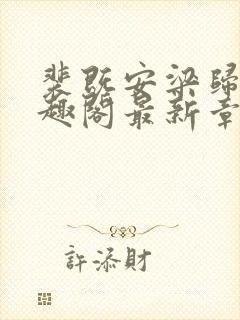 裴既安梁歸
趣閣最新章
許添財